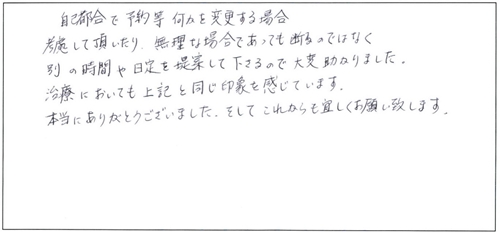 自己都合で予約等何かを変更する場合
考慮して頂いたり、無理な場合であっても断るのではなく
別の時間や日定を提案して下さるので大変助かりました。
治療においても上記と同じ印象を感じています。
本当にありがとうございました。そしてこれからも宜しくお願い致します。